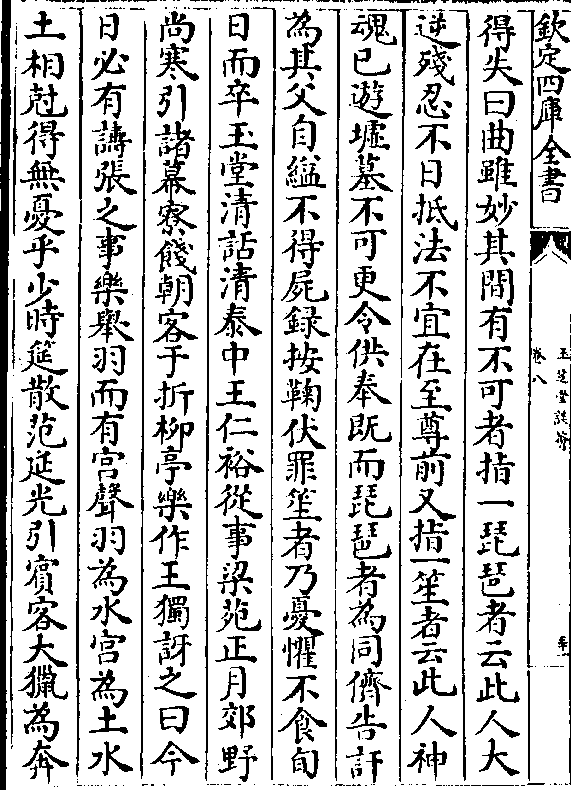 欽定四庫全書
玉芝堂談薈
卷八
得失曰曲雖妙其間有不可者指一琵琶者云此人大
逆殘忍不日抵法不宜在至尊前又指一笙者云此人神
魂已遊墟墓不可更令供奉既而琵琶者為同儕告訐
為其父自縊不得屍錄按鞫伏罪笙者乃憂懼不食旬
日而卒玉堂清話清泰中王仁裕從事梁苑正月郊野
尚寒引諸幕寮餞朝客于折柳亭樂作王獨訝之曰今
日必有譸張之事樂舉羽而有宮聲羽為水宮為土水
土相尅得無憂乎少時筵散范延光引賓客大獵為奔